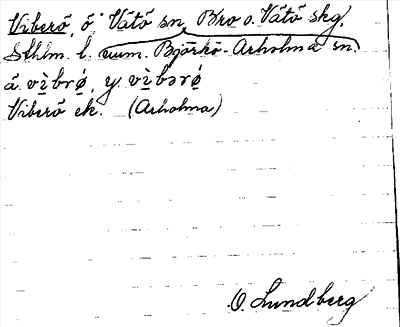 Viberö, ö i Vätö sn, Bro o. Vätö skg,
Sthlm. l. num. Björkö-Arholma sn.
ä vìbrǿ, y vìbərǿ
Viberö ek. (Arholma)
O. Lundberg